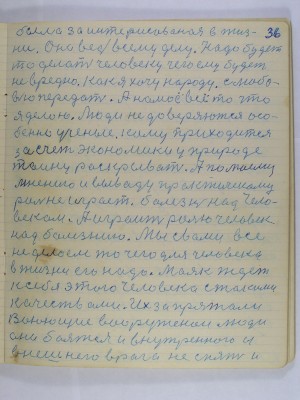 36
была заинтерисованая в жиз-
ни. Оно вед всему делу. Надо будет
то делать человеку чего ему будет
не вредно. Как я хочу народу
передат. А на моё всё то что
я делаю. Люди не доверяются осо-
бенно учение, кому приходится
за счет экономики у природе
тайну раскрыват. А по моему
мнению и выводу практическому
рол не играет. болезнь над чело-
веком. А играит ролю человек
над болезнию. Мы с вами все
не делаем то чего для человека
в жизни его надо. Маяк ждет
к себе этого человека с такими
качествами. Их запрятали
Воюющие вооруженом люди
они боятся и внутренного и
внешнего врага не спят и